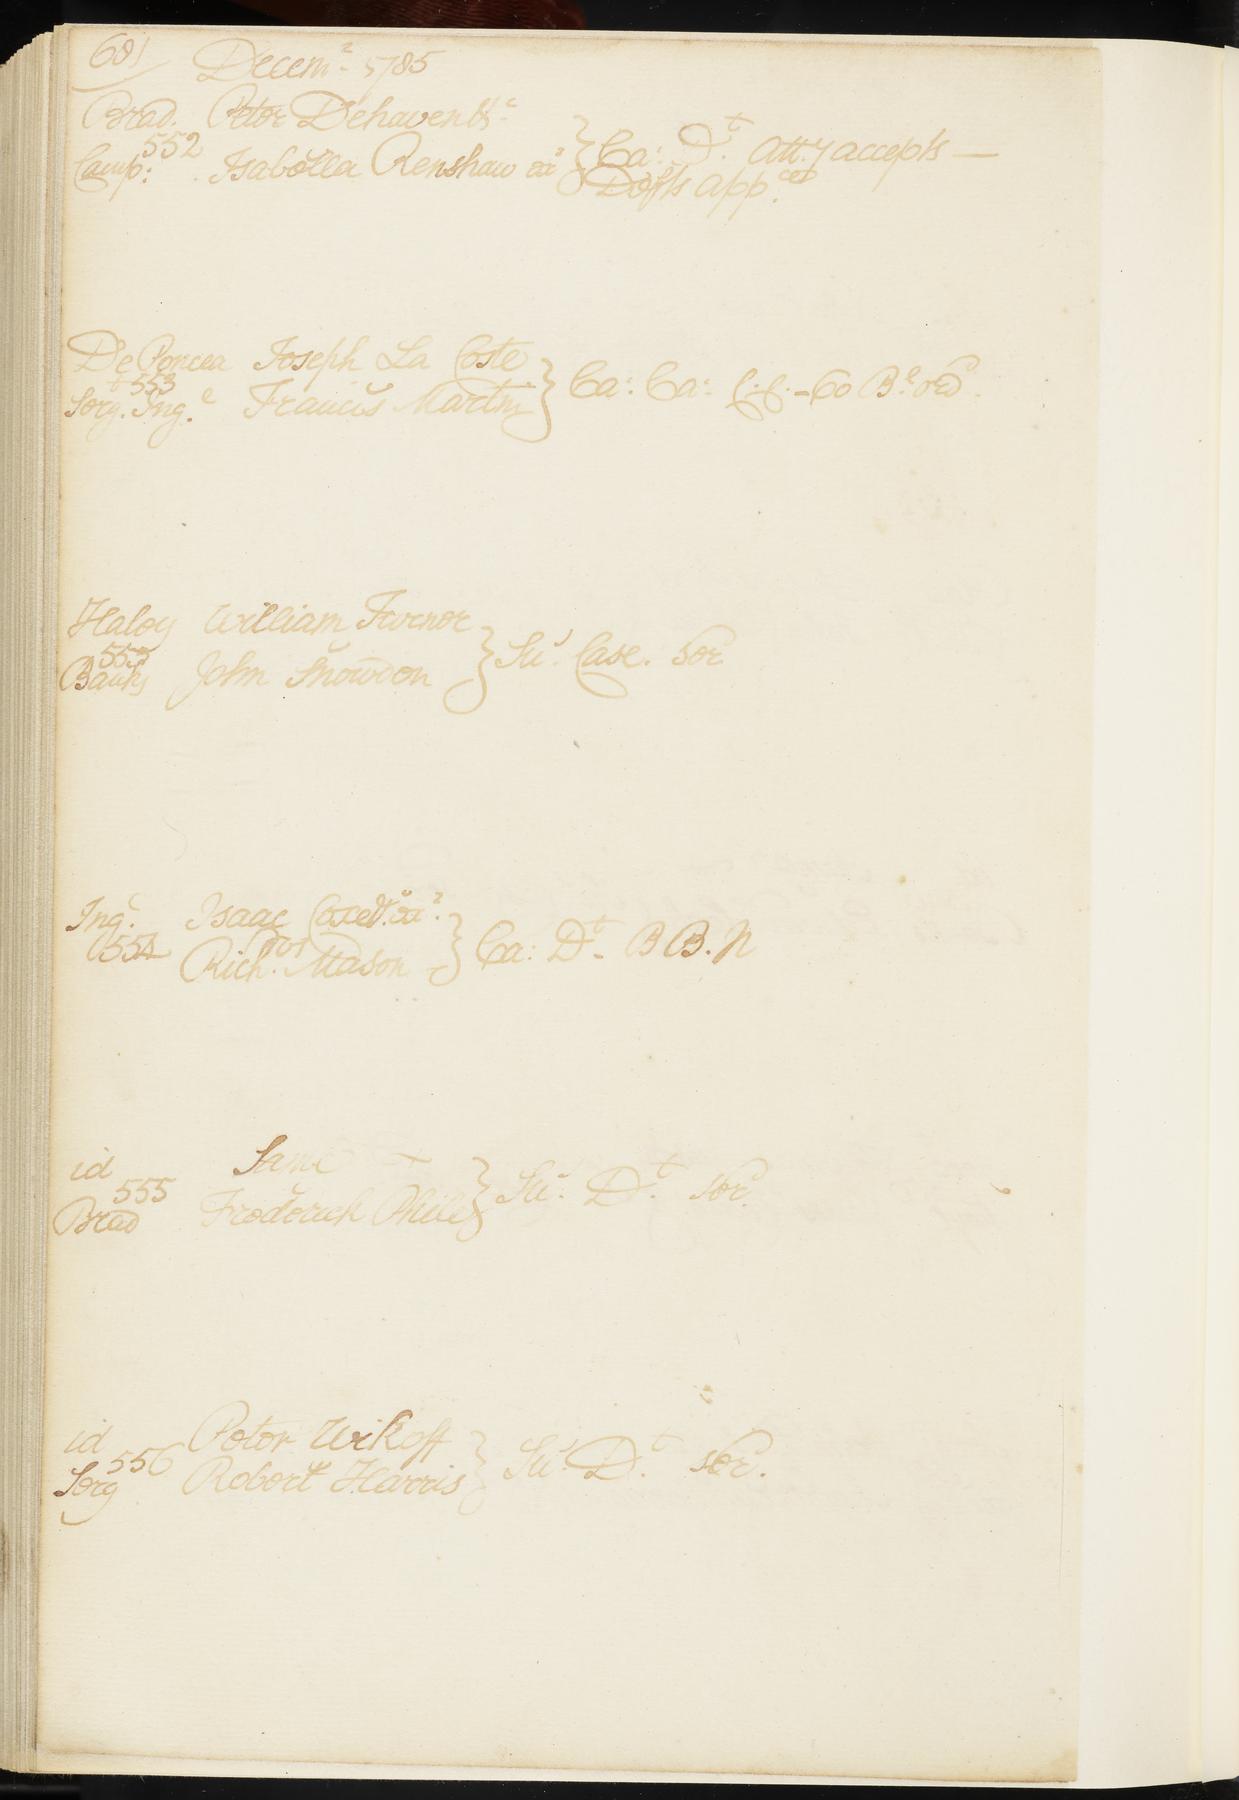 681 Decem.r 1785
Brad. Peter Dehaven &c
552
Camp: Isabella Renshaw ex } Ca: D.t Att.y accepts —
Defts app.ce
De Poncea Joseph La Coste
553 } Ca: Ca: C.C. - Co B.e
Serg.t Ing.e Francis Martin
Haley William Turner
553 } Su.s Case. Sor
Banks John Snowdon
Ing. Isaac Coxe
554 } Ca: D.t B B. N
Rich. Mason
id Same
555 } Su.s D.t Sor
Brad Frederick Phile
id Peter Wikoff
556 } Su.s D.t Sor.
Serg Robert Harris